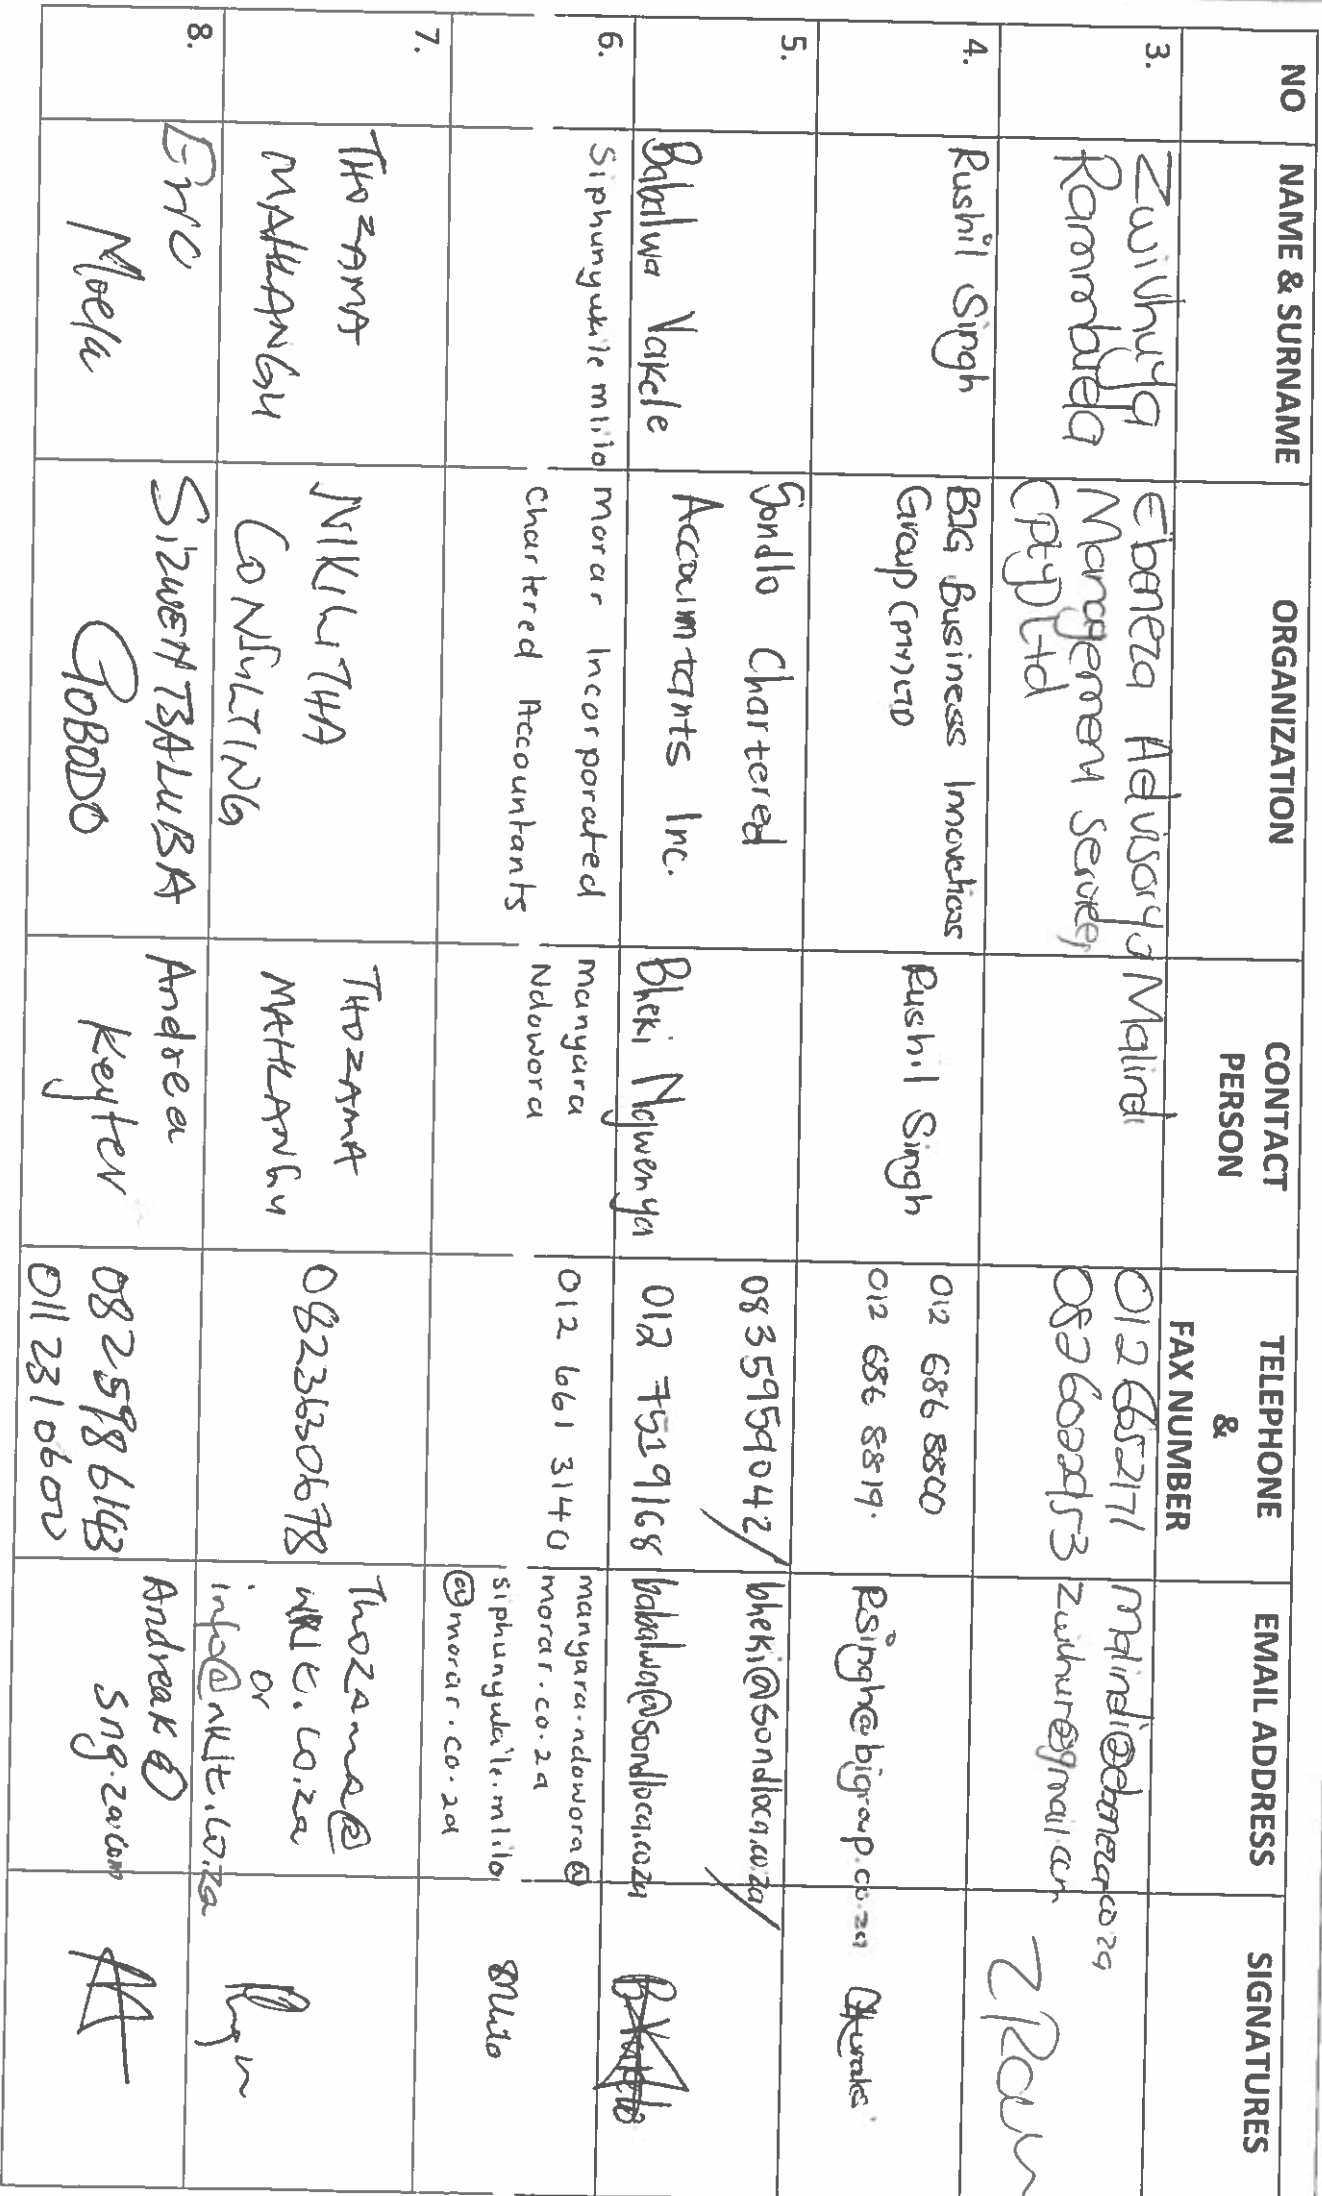 NO
NAME & SURNAME
ORGANIZATION
CONTACT
PERSON
TELEPHONE
&
FAX NUMBER
EMAIL ADDRESS
SIGNATURES
3.
Zwivhuya
Rammbuda
Ebeneza Advisory &
Management Services
(Pty) Ltd
Malindi
012 6652171
0826002953
malindi@ebeneza.co.za
zwivhur@gmail.com
4.
Rushil Singh
BIG Business Innovations
Group (PTY) LTD
Rushil Singh
012 686 8800
012 686 8819.
RSingh@bigroup.co.za
5.
Babalwa Vakele
Sondlo Chartered
Accountants Inc.
Bheki Ngwenya
0835959042
012 7519168
bheki@sondloca.co.za
babalwa@sondloca.co.za
6.
Siphunyukile mlilo
Morar Incorporated
Chartered Accountants
Manyara
Ndowora
012 661 3140
manyara.ndowora@
morar.co.za
siphunyukile.mlilo
@morar.co.za
SMlilo
7.
THOZAMA
MAHLANGU
NIKILITHA
CONSULTING
THOZAMA
MAHLANGU
0823630678
Thozama@
nklt.co.za
or
info@nklt.co.za
8.
Eric
Moela
SIZWENTSALUBA
GOBODO
Andrea
Keyter
0825986143
0112310600
Andreak@
sng.za.com